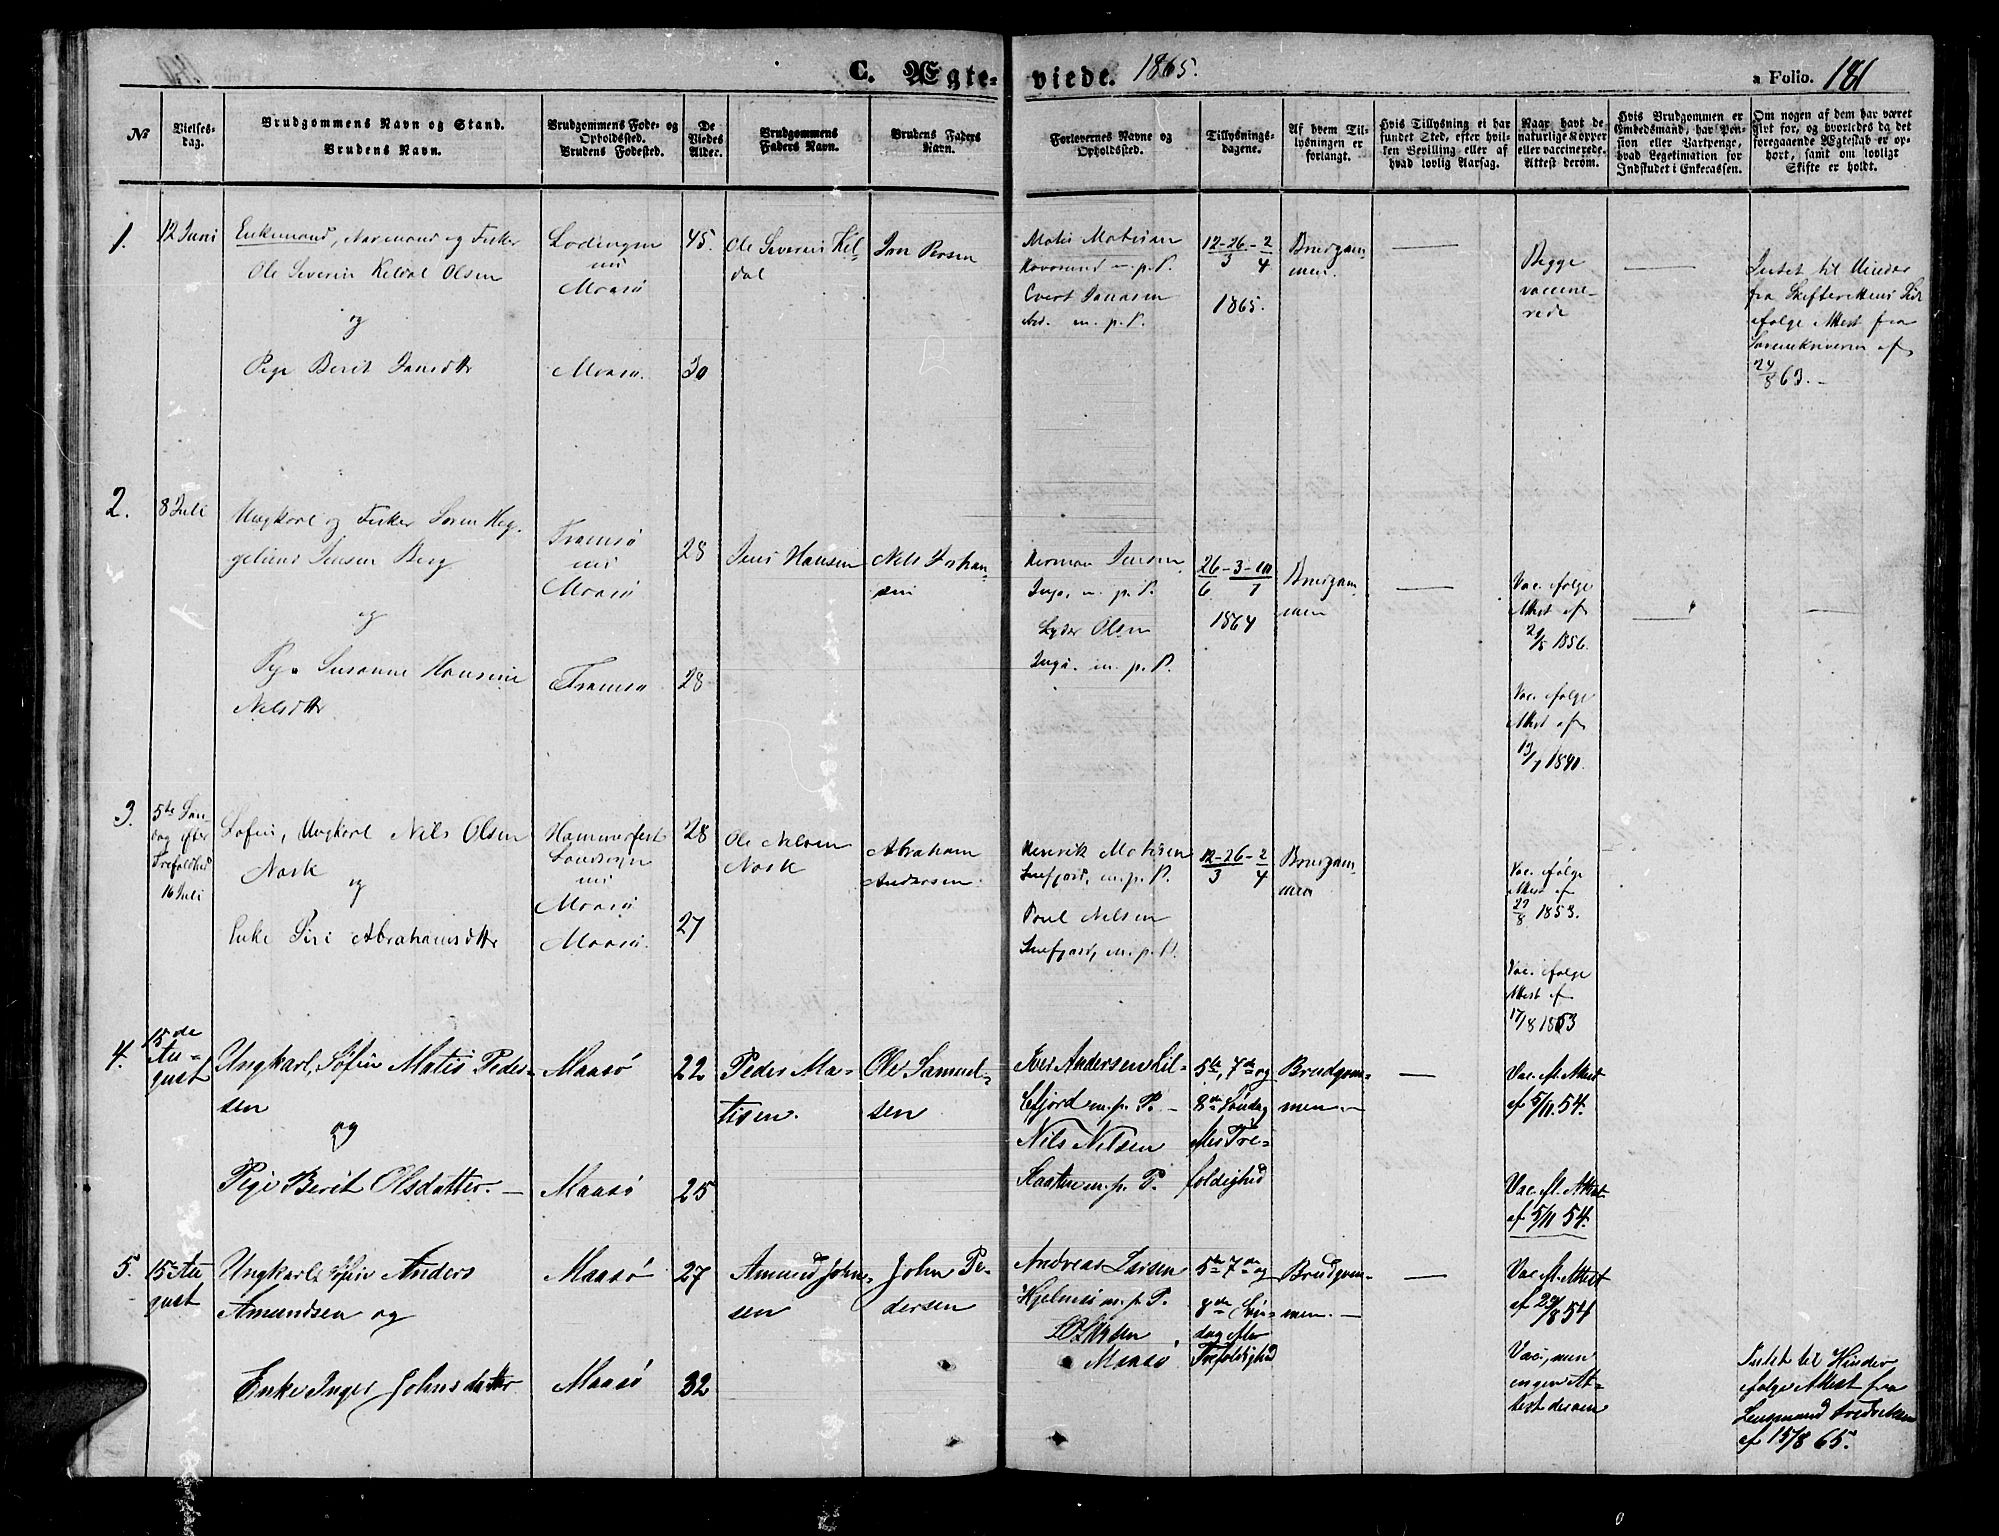 C. Ægte-
viede. 1865.
a Folio. 181
No
Vielses-
dag.
Brudgommens Navn og Stand.
Brudens Navn.
Brudgommens Føde- og
Opholdssted.
Brudens Fødested.
De
Viedes
Alder.
Brudgommens
Faders Navn.
Brudens Faders
Navn.
Forlovernes Navne og
Opholdssted.
Tillysnings-
dagene.
Af hvem Til-
lysningen er
forlangt.
Hvis Tillysning ei har
fundet Sted, efter hvil-
ken Bevilling eller af
hvad lovlig Aarsag.
Naar havt de
naturlige Kopper
eller vaccinerede.
Attest derom.
Hvis Brudgommen er
Embedsmand, har Pen-
sion eller Vartpenge,
hvad Legitimation for
Indskudet i Enkecassen.
Om nogen af dem har været
givt for, og hvorledes da det
foregaaende Ægteskab er op-
hørt, samt om lovligt
Skifte er holdt.
1.
12 Juni
Enkemand, Normand og Fisker
Ole Severin Keldal Olsen
og
Pige Berit Jansdtr
Lodingen
nu
Maasø
Maasø.
45.
30
Ole Severin Kel-
dal
Jan Persen
Matis Matisen
Havøsund m. p. P.
Evert Jonassen
m. p. P.
12-26-2
3 4
1865.
Brudgom-
men.
Begge
vaccine-
rede
Intet til Hinder
fra Skifterettens Side
ifølge Attest fra
Sorenskriveren af
24/8 63.
2.
8 Juli
Ungkarl og Fisker Søren Heg-
gelund Jensen Berg
og
Pige Susanne Hansine
Nelsdtr
Tromsø
nu
Maasø
Tromsø
28
28
Jens Hansen
Nils Johan-
sen
Herman Jensen
Ingø, m. p. P.
Lyder Olsen
Ingø. m. p. P.
26-3-10
6 7
1864
Brudgom-
men
Vac. ifølge
Attest af
21/5 1856.
Vac. ifølge
Attest af
13/7 1840.
3.
5te Søn-
dag efter
Trefoldhed
16 Juli
Søfin, Ungkarl Nils Olsen
Nask
og
Enke Siri Abrahamsdtr
Hammerfest
Landsogn
nu
Maasø
Maasø.
28
27
Ole Nilsen
Nask
Abraham
Andersen.
Henrik Matisen
Snefjord, m. p. P.
Poul Nilsen
Snefjord, m. p. P.
12-26-2
3 4
Brudgom-
men
Vac. ifølge
Attest af
27/8 1853.
Vac. ifølge
Attest af
17/8 1853
4.
15de
Au-
gust
Ungkarl, Søfin Matis Peder-
sen
og
Pige Berit Olsdatter.
Maasø
Maasø
22
25
Peder Ma-
tisen.
Ole Samuel-
sen
Iver Andersen Lil-
lefjord m. p. P.
Nils Nilsen
m. p. P.
5te, 7de og
8de Søndag
efter Tre-
foldighed
Brudgom-
men.
Vac. if. Attest
af 5/11 54.
Vac. if. Attest
af 5/11 54.
5.
15de Au
gust
Ungkarl Søfin Anders
Amundsen og
Enke Inger Johnsdatter
Maasø
Maasø
27
32
Amund John-
sen
John Pe-
dersen
Andreas Larsen
Hjelmsø m. p. P.
Maasø
5te 7de og
8de Søn-
dag efter
Trefoldighed
Brudgom-
men.
Vac. if. Attest
af 29/8 54
Vac., men
ingen At-
test derom
Intet til Hinder
ifølge Attest fra
Lensmand Fredriksen
af 15/8 65.